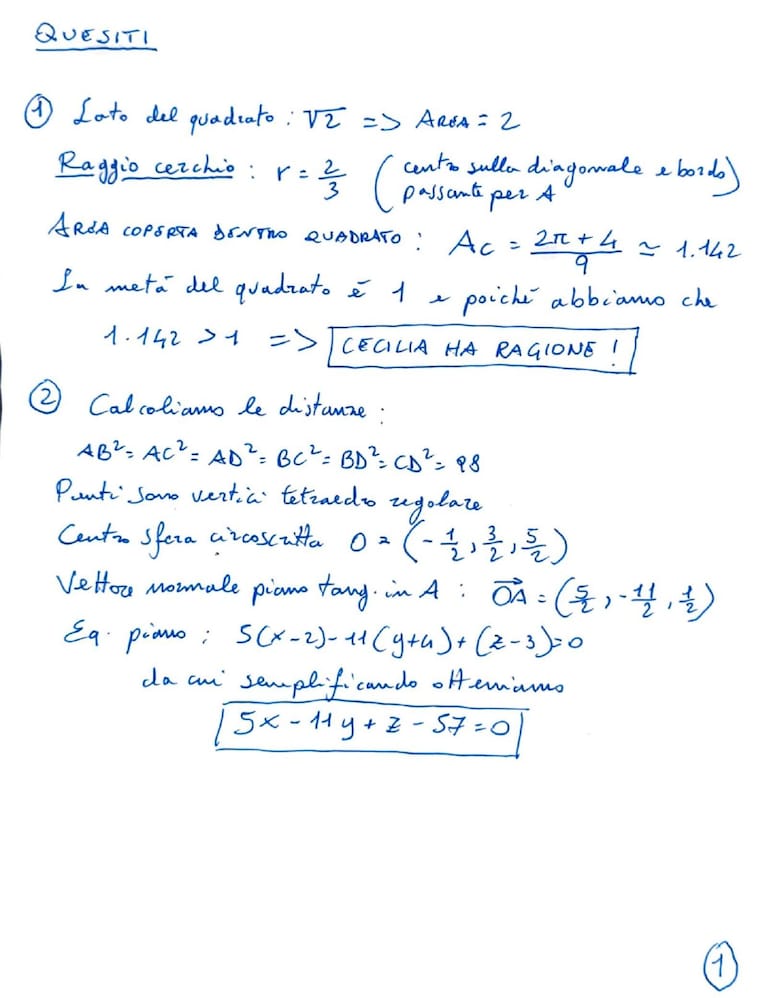 QUESITI
① Lato del quadrato : √2 => AREA = 2
Raggio cerchio : r = 2/3 (centro sulla diagonale e bordo passante per A)
AREA COPERTA DENTRO QUADRATO : Ac = (2π + 4)/9 ≃ 1.142
La metà del quadrato è 1 e poiché abbiamo che
1.142 > 1 => CECILIA HA RAGIONE !
② Calcoliamo le distanze :
AB² = AC² = AD² = BC² = BD² = CD² = 98
Punti sono vertici tetraedro regolare
Centro sfera circoscritta O = (-1/2, 3/2, 5/2)
Vettore normale piano tang. in A : OA→ = (5/2, -11/2, 1/2)
Eq. piano : 5(x-2) - 11(y+4) + (z-3) = 0
da cui semplificando otteniamo
5x - 11y + z - 57 = 0
①